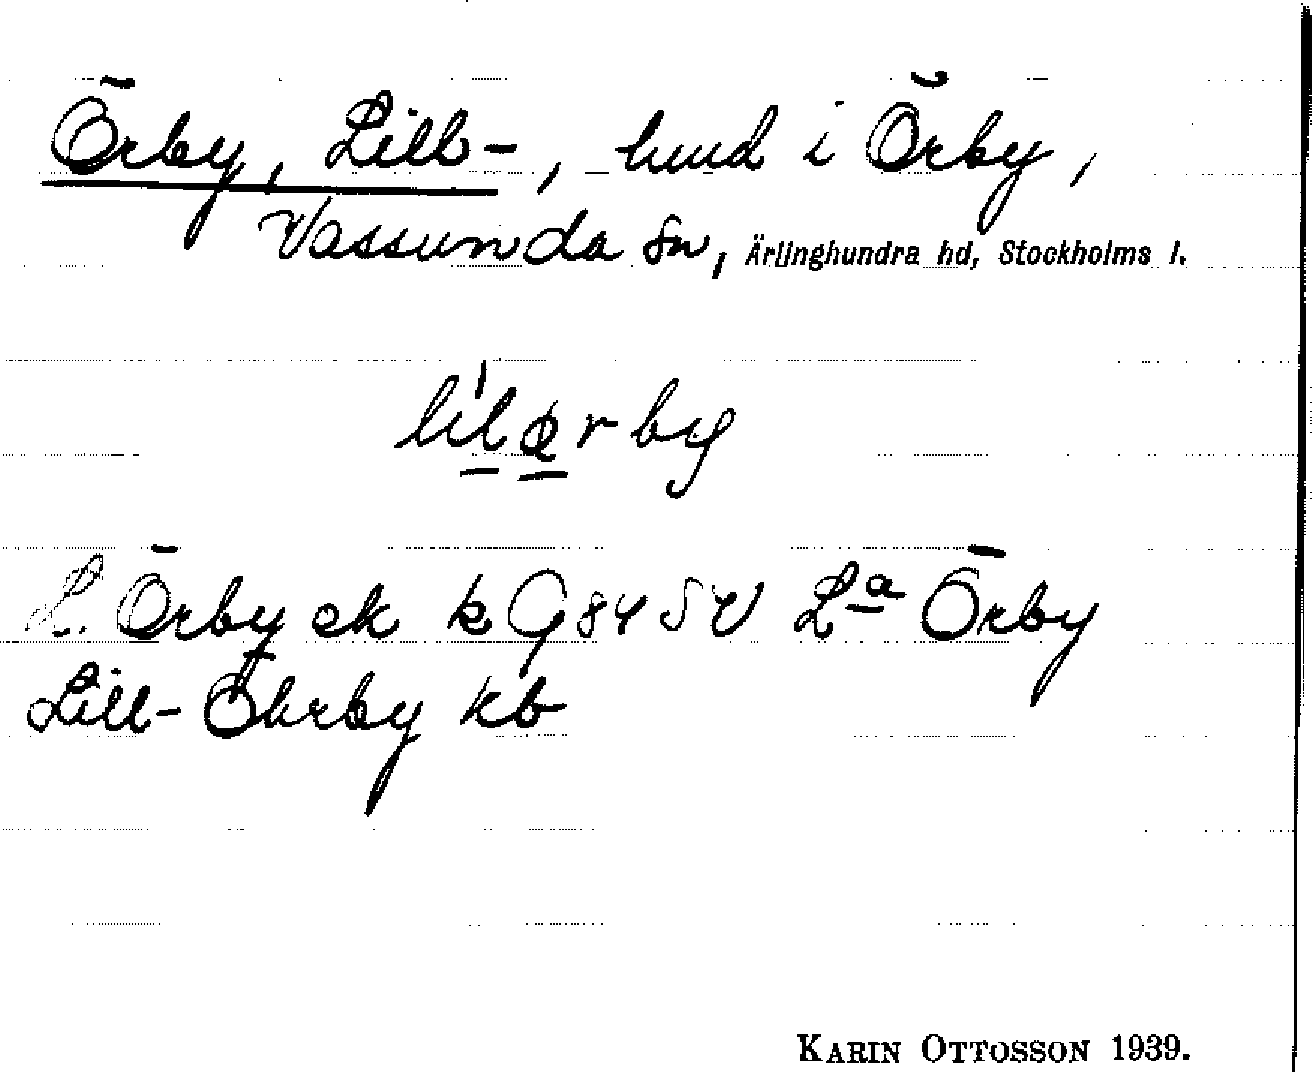 Örby, Lill-, hmd i Örby,
Vassunda sn, Ärlinghundra hd, Stockholms l.
lilørby
L. Örby ek k G 84 SV La Örby
Lill-Öhrby kb
KARIN OTTOSSON 1939.